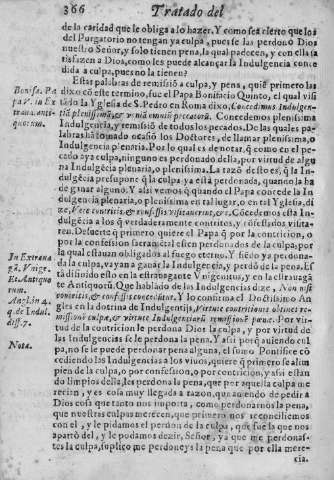 366 Tratado del
de la caridad que le obliga a lo hazer. Y como sea cierto que los
del Purgatorio no tengan ya culpa, pues se las perdonò Dios
nuestro Señor, y solo tienen pena, la qual padecen, y con ella sa
tisfazen a Dios, como les puede alcançar la Indulgencia conce
dida a culpa, pues no la tienen?
Estas palabras de remissiõ a culpa, y pena, quiẽ primero las
Bonifa. Pa dixo cõ este termino, fue el Papa Bonifacio Quinto, el qual visi
pa V. in Ex tãdo la Yglesia de S. Pedro en Roma dixo, Concedimus Indulgen-
traua. anti- tiã plenissimã, & veniã omniũ peccatorũ. Concedemos plenissima
quorum. Indulgencia, y remissiõ de todos los pecados. De las quales pa
labras ha tomado ocasiõ los Doctores, de llamar plenissima, o
Indulgencia plenaria. Por lo qual es de notar, q̃ como en el pe-
cado aya culpa, ninguno es perdonado della, por virtud de algu
na Indulgẽcia plenario, o plenissima. La razõ desto es, q̃ la In
dulgẽcia presupone q̃ la culpa ya està perdonada, quando la ha
de ganar alguno. Y assi vemos q̃ quando el Papa concede la In
dulgencia plenario, o plenissima en tal lugar, o en tal Yglesia, di
ze, Vere contritis, & confessis visitantibus, &c. Cõcedemos esta In
dulgencia a los q̃ verdaderamente contritos, y cõfessados, visita-
ren. De suerte q̃ primero quiere el Papa q̃ por la contricion, o
por la confession sacramẽtal estẽn perdonados de la culpa, por
la qual estauan obligados al fuego eterno. Y siẽdo ya perdona-
In Extraua da la culpa, vayan a ganar la Indulgencia, y perdõ de la pena. Es
gã. Vnige. tà difinido esto en la estrauagante Vnigenitus, y en la estrauagã
Et Antiquo te Antiquorũ. Que hablãdo de las Indulgencias dize, Non nisi
rum. contritis, & confessis conceditur. Y lo confirma el Doctissimo An
Angl. in 4. gles en la dotrina de Indulgentijs, Virtute contritionis obtinet re
q. de Indul. missionẽ culpæ, & virtute Indulgentiarũ remissionẽ pœnæ. Por vir-
diff. 7. tud de la contricion le perdona Dios la culpa, y por virtud de
las Indulgencias se le perdona la pena. Y assi porq̃ auiendo cul
Nota. pa, no se le puede perdonar pena alguna, el sumo Pontifice cõ
cediendo las Indulgencias a los viuos, quiere q̃ primero se alim
pien de la culpa, o por confession, o por contricion, y assi estan
do limpios della, les perdona la pena, que por aquella culpa me
recian, y es cosa muy llegada a razon, que auiendo de pedir a
Dios cosa que tanto nos importa, como perdonarnos la pena,
que nuestras culpas merecen, que primero nos reconciliemos
con el, y le pidamos el perdon de la culpa, que fue la que nos
apartò del, y le podamos dezir, Señor, ya que me perdonas-
tes la culpa, suplico me perdoneys la pena que por ella mere-
cia.